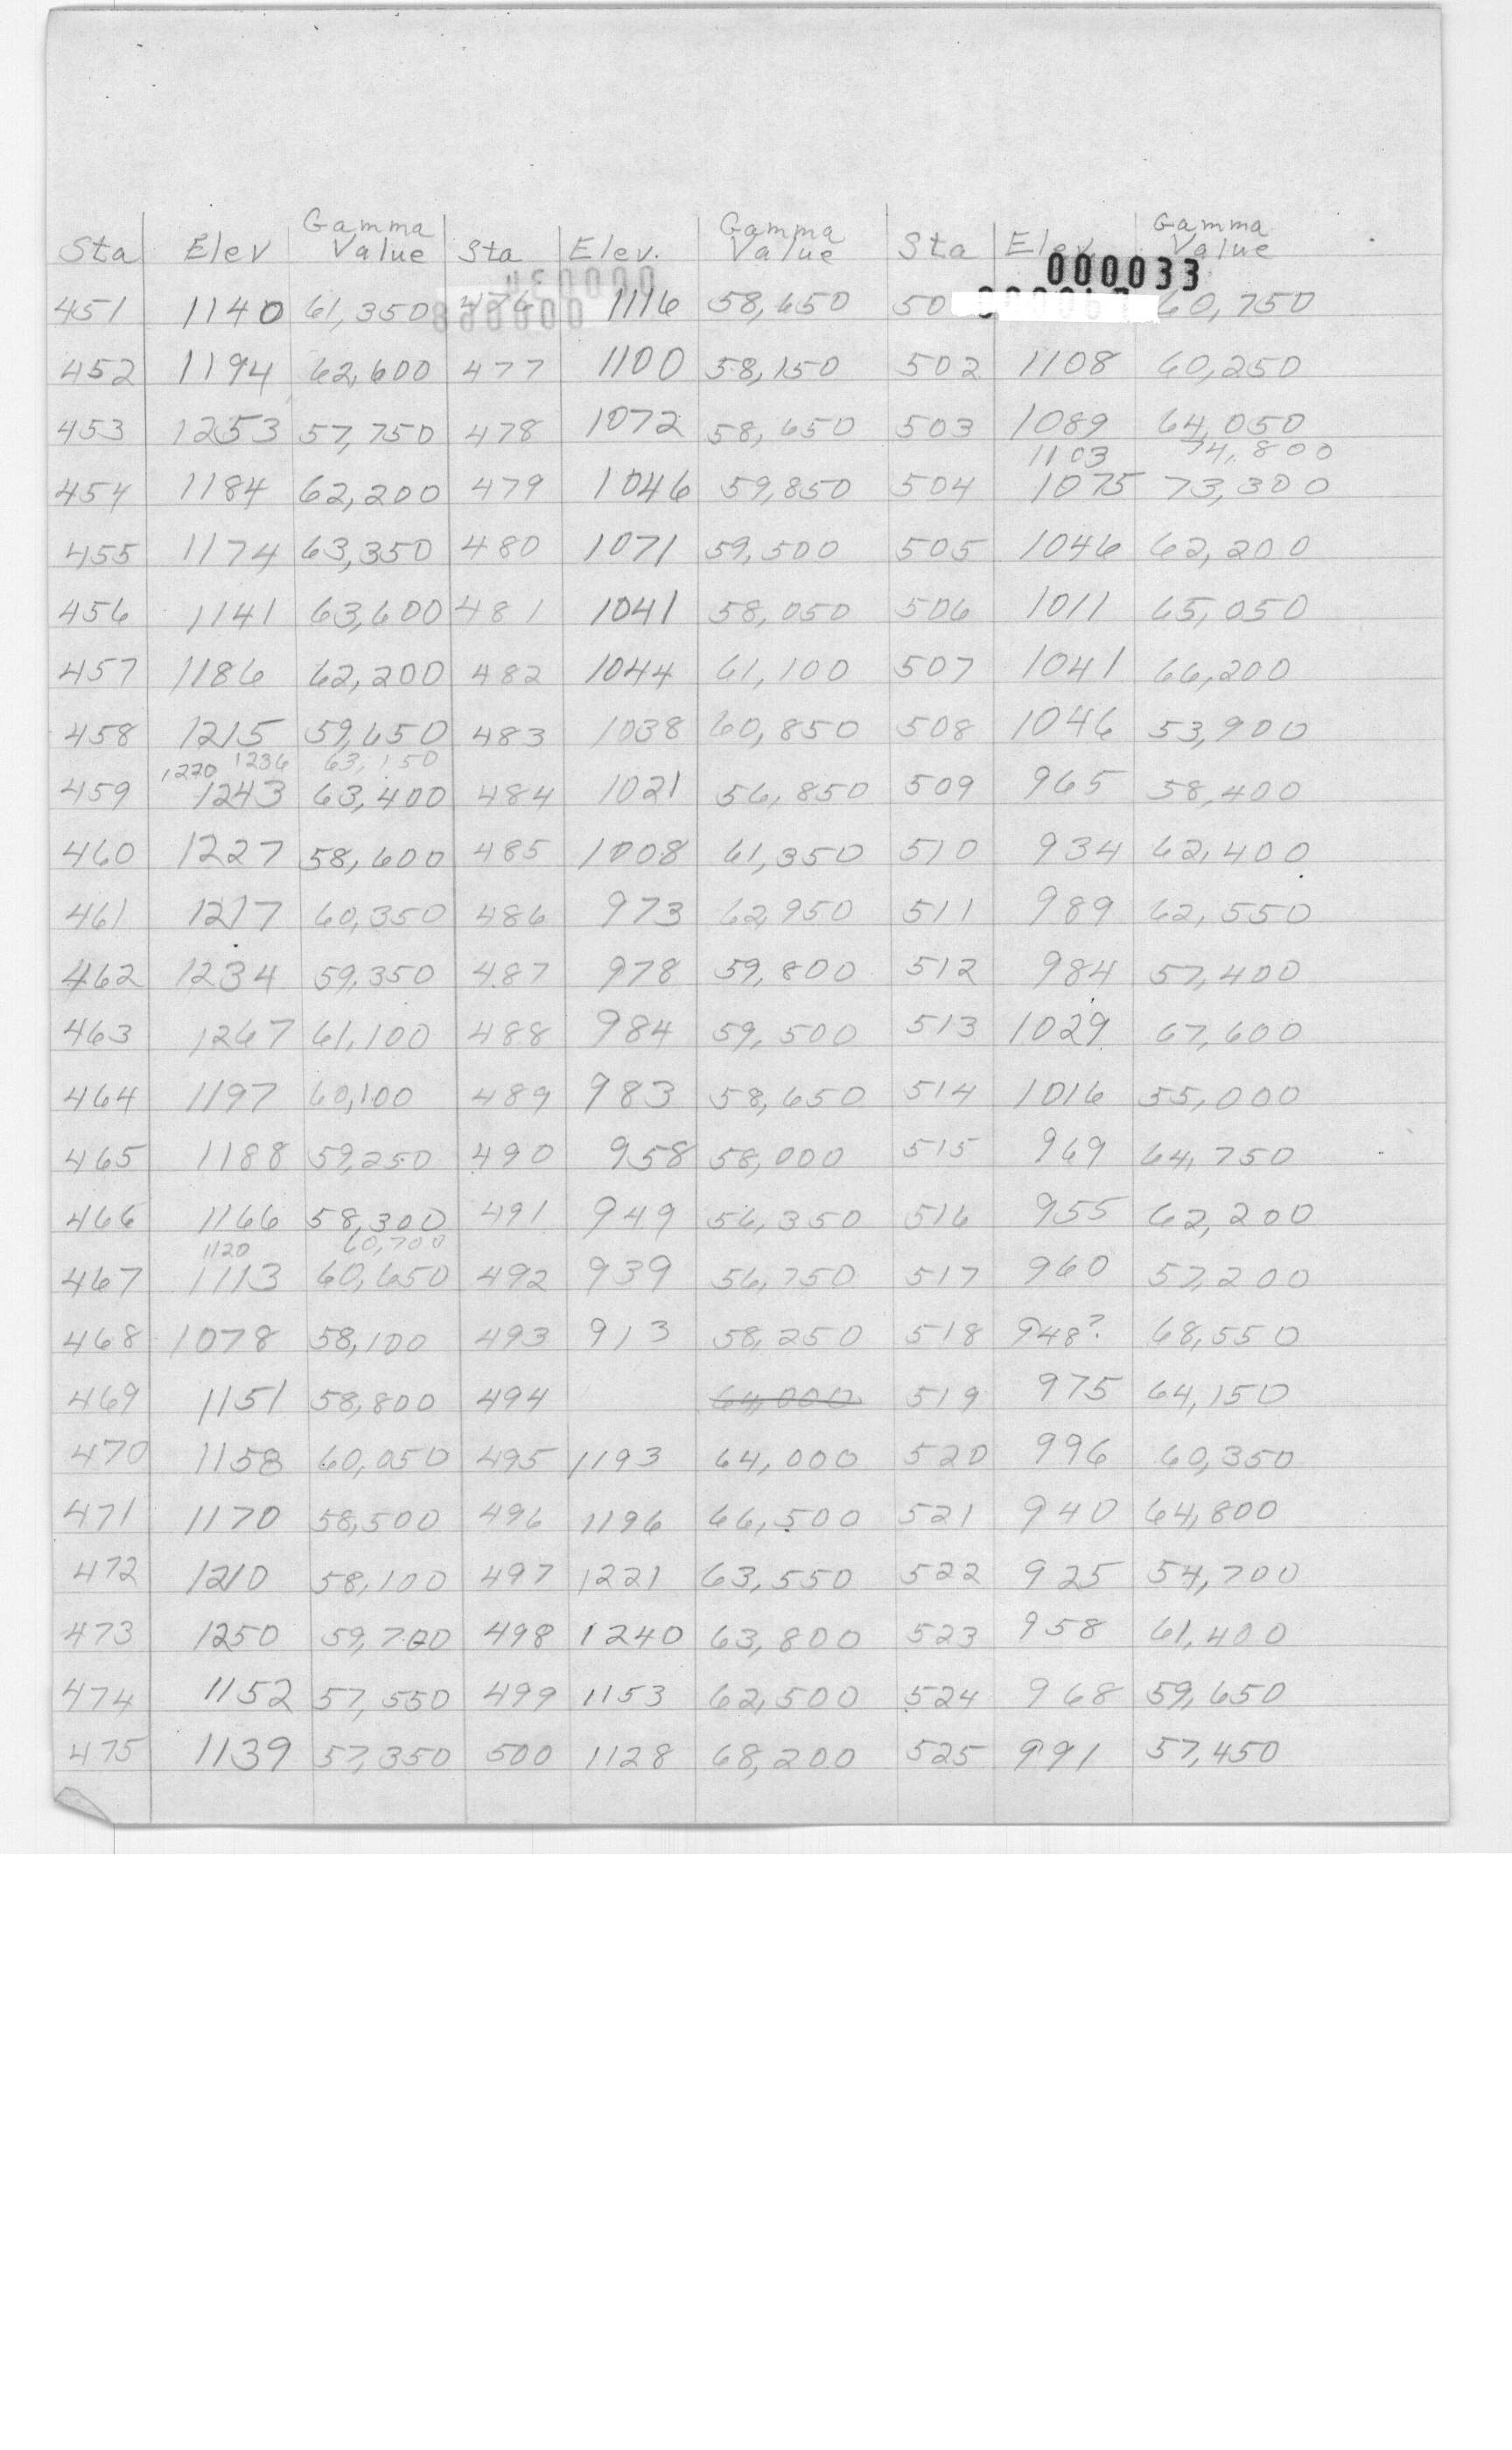 Gamma Gamma Gamma
Sta Elev Value Sta Elev. Value Sta Elev Value
000033
451 1140 61,350 476 1116 58,650 50 60,750
452 1194 62,600 477 1100 58,150 502 1108 60,250
453 1253 57,750 478 1072 58,650 503 1089 64,050
1103 74,800
454 1184 62,200 479 1046 59,850 504 1075 73,300
455 1174 63,350 480 1071 59,500 505 1046 62,200
456 1141 63,600 481 1041 58,050 506 1011 65,050
457 1186 62,200 482 1044 61,100 507 1041 66,200
458 1215 59,650 483 1038 60,850 508 1046 53,900
1220 1236 63,150
459 1243 63,400 484 1021 56,850 509 965 58,400
460 1227 58,600 485 1008 61,350 510 934 62,400
461 1217 60,350 486 973 62,950 511 989 62,550
462 1234 59,350 487 978 59,800 512 984 57,400
463 1267 61,100 488 984 59,500 513 1029 67,600
464 1197 60,100 489 983 58,650 514 1016 55,000
465 1188 59,250 490 958 58,000 515 969 64,750
466 1166 58,300 491 949 56,350 516 955 62,200
1120 60,700
467 1113 60,650 492 939 56,750 517 960 57,200
468 1078 58,100 493 913 58,250 518 948? 68,550
469 1151 58,800 494 64,000 519 975 64,150
470 1158 60,050 495 1193 64,000 520 996 60,350
471 1170 58,500 496 1196 66,500 521 940 64,800
472 1210 58,100 497 1221 63,550 522 925 54,700
473 1250 59,700 498 1240 63,800 523 958 61,400
474 1152 57,550 499 1153 62,500 524 968 59,650
475 1139 57,350 500 1128 68,200 525 991 57,450